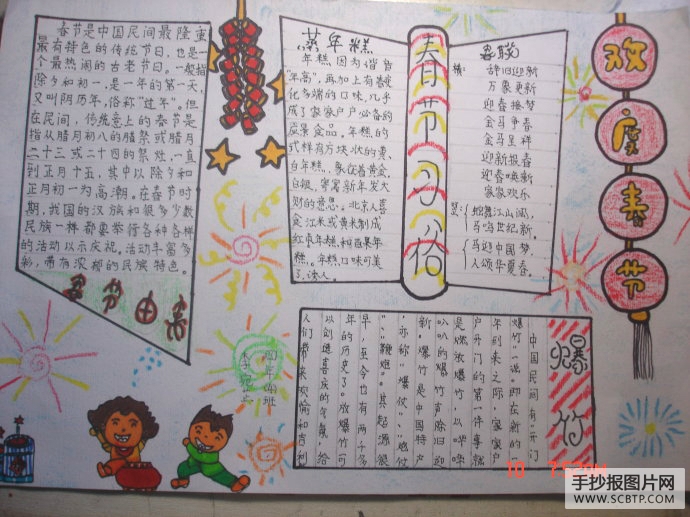 春节是中国民间最隆重
最有特色的传统节日,也是一
个最热闹的古老节日。一般指
除夕和初一,是一年的第一天,
又叫阴历年,俗称"过年"。但
在民间,传统意上的春节是
指从腊月初八的腊祭或腊月
二十三或二十四的祭灶,一直
到正月十五,其中以除夕和
正月初一为高潮。在春节时
期,我国的汉族和很多少数
民族一样都要举行各种各样
的活动以示庆祝。活动丰富多
彩,带有浓郁的民族特色。
春节由来
蒸年糕
年糕因为谐音
"年高",再加上有着变
化多端的口味,几乎
成了家家户户必备的
应景食品。年糕的
式样有方块状的黄、
白年糕,象征着黄金、
白银,寄寓新年发大
财的意思。北京人喜
食江米或黄米制成
红枣年糕、百果年
糕。年糕口味可美
了,诱人。
春节习俗
春联
横:
辞旧迎新
万象更新
迎春接梦
金马争春
金马呈祥
迎新报春
迎春唤新
家家欢乐
竖:
蛇舞江山阔,
马鸣世纪新。
马迎中国梦,
人颂华夏春。
欢度春节
爆竹
中国民间有"开门
爆竹"一说。即在新的一
年到来之际,家家户
户开门的第一件事就
是燃放爆竹,以哔哔
叭叭的爆竹声除旧迎
新。爆竹是中国特产
,亦称"爆仗"、"炮仗
"、"鞭炮"。其起源很
早,至今也有两千多
年的历史了。放爆竹可
以创造喜庆的气氛,给
人们带来欢愉和吉利
四年4班
手抄报图片网
WWW.SCBTP.COM